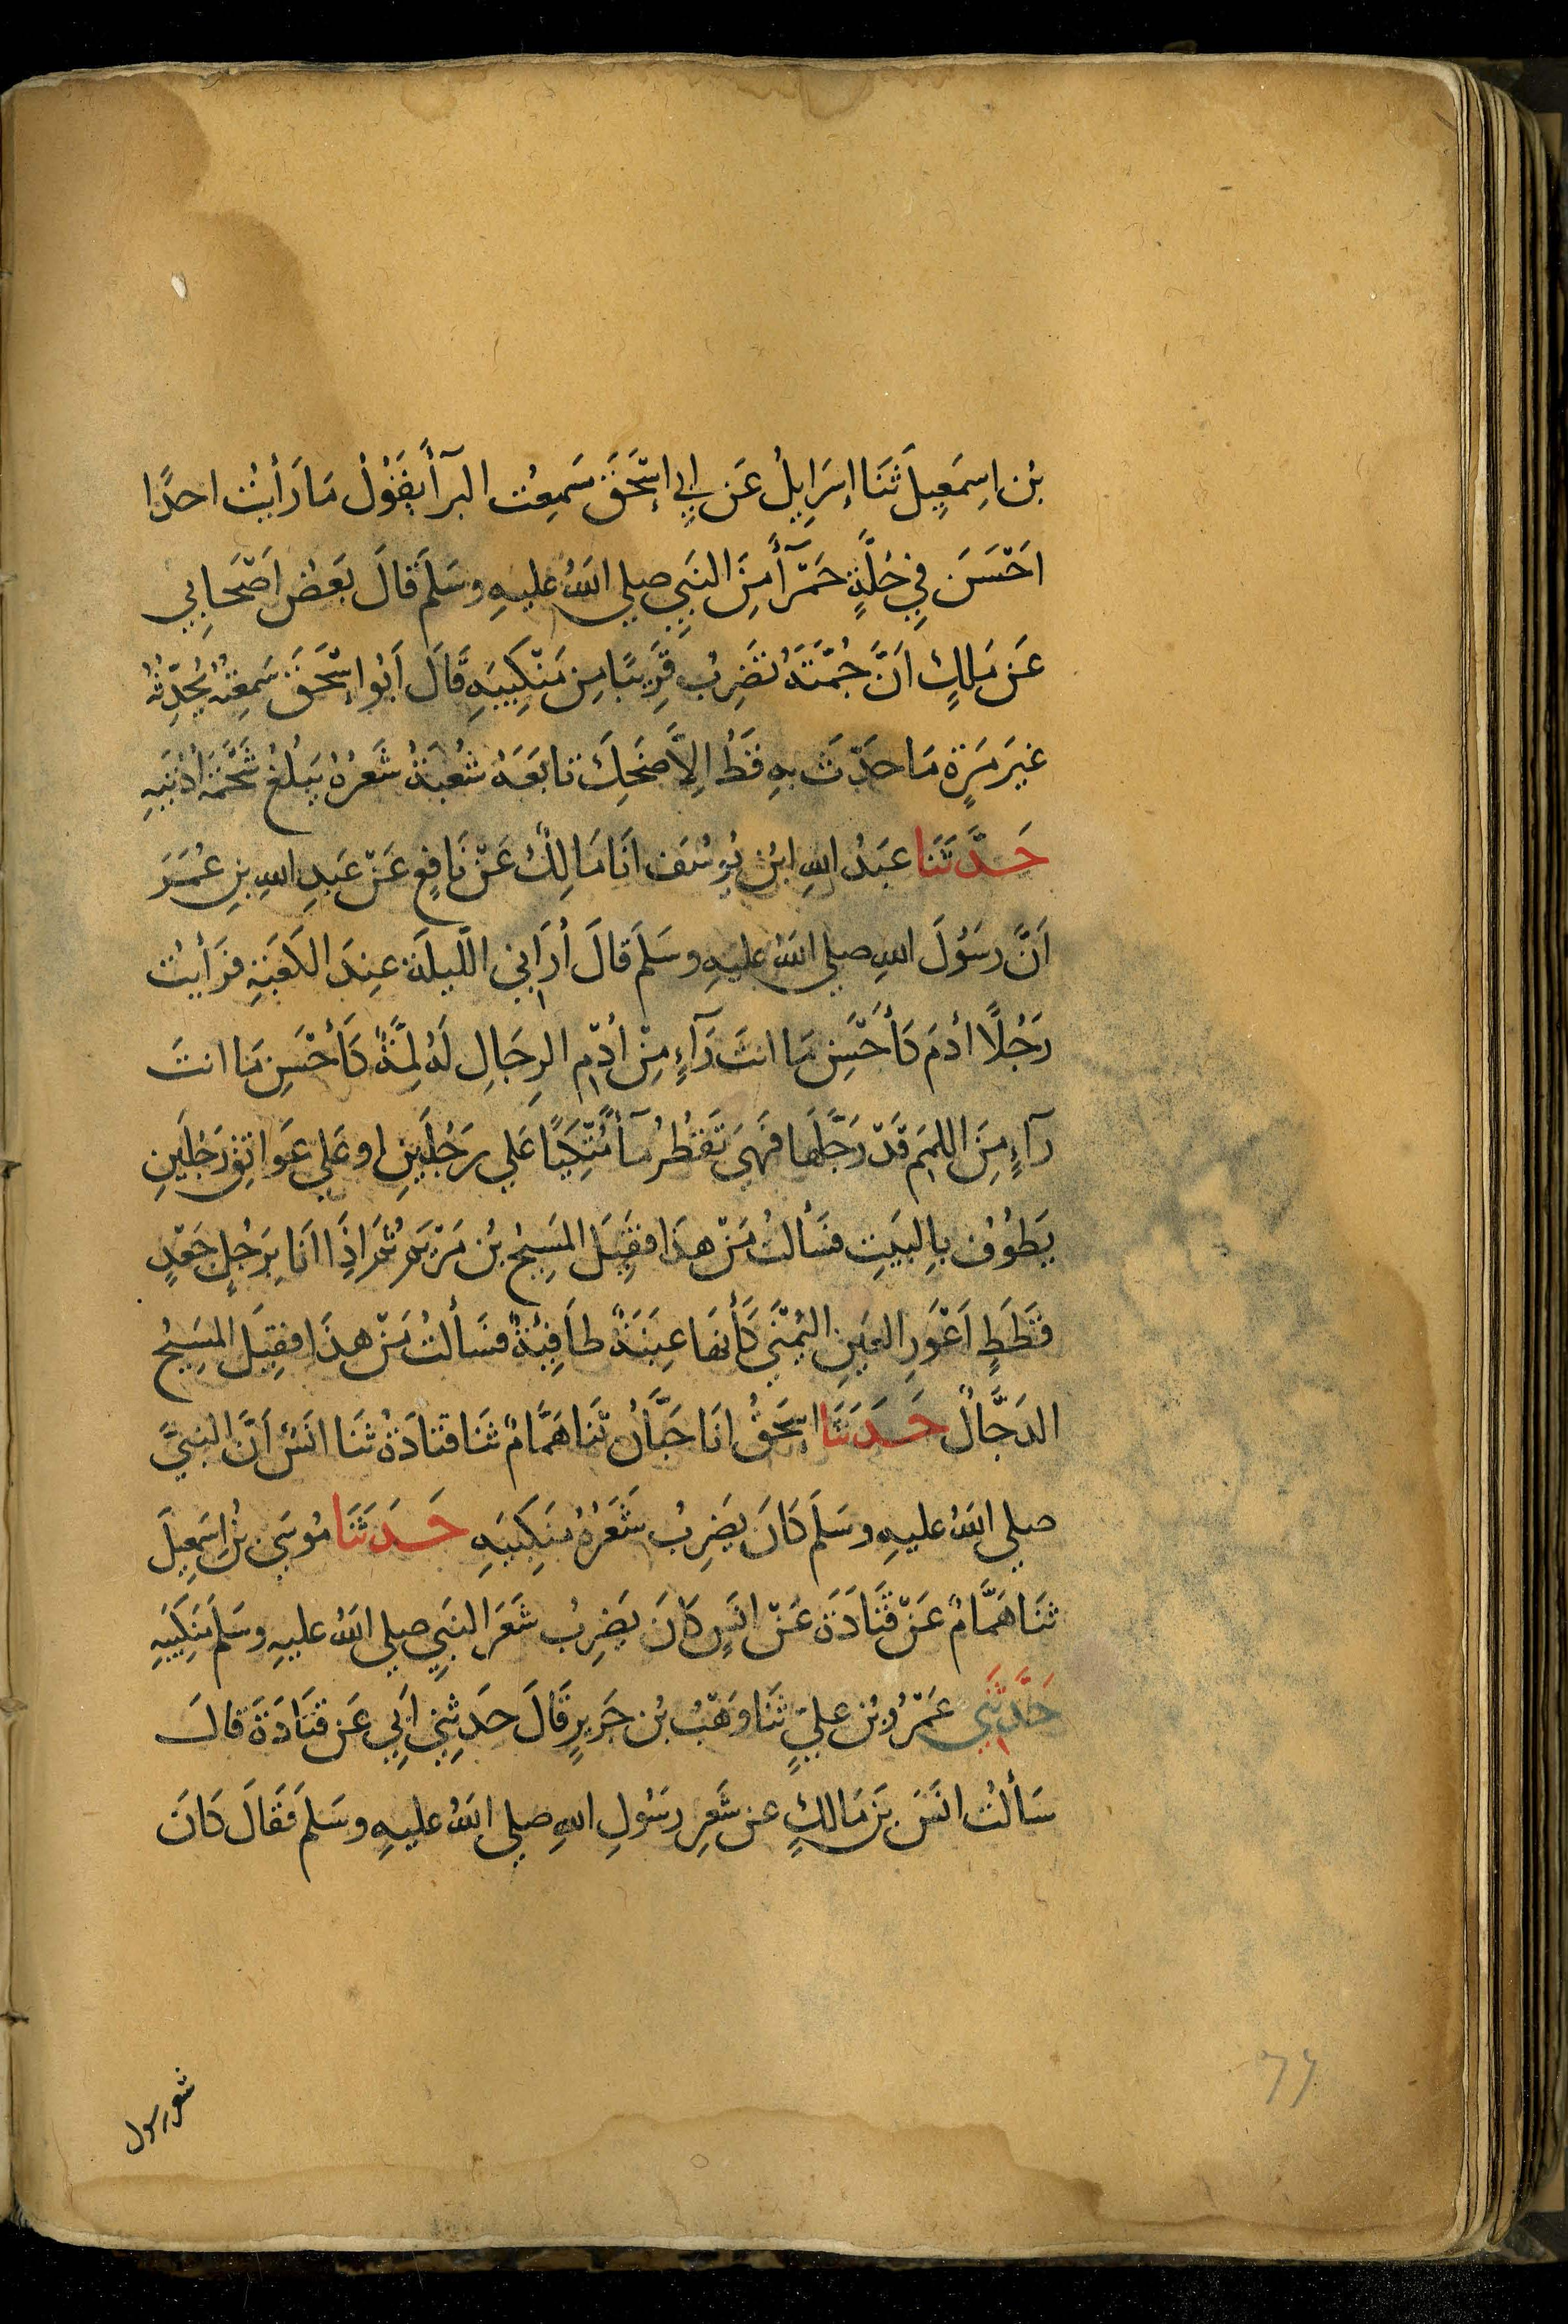 بْن اِسمَعِيلَ ثَنَا اِسرَايِلُ عَن اَبِي اِسْحَقَ سَمِعْت البرآَ يَقُوْلُ مَا رَأيْتُ احدًا
احَسَنَ فِي حُلَّةٍ حَمْرآَ مِنَ النَبِي صلي اللهُ عليهِ وسَلمَ قالَ بَعضُ اَصْحَابِي
عَن مَلِكٍ اَنَّ جُمَّتَهُ تضَرِبُ قَرِيبًا مِن مَنْكِبيَهِ قَالَ اَبُو اِسْحَقَ سَمِعتُهُ يُحَدِّثُهُ
غيَرَ مَرَةٍ مَا حَدَّثَ بهِ قَطُ اِلاَّ ضَحِكَ تابَعَهُ شُعْبَةُ شَعَرُهُ يَبلُغُ شَحْمَةَ اُذُنيَهِ
حَدَّثَنا عبَدُ اللهِ ابْن يُوسُفَ انَا مَالِكٌ عَنْ نَافِعٍ عَنْ عَبدِ اللهِ بنِ عُمَرَ
اَنَّ رسَوُلَ اللهِ صلي اللهُ عليهِ وسَلمَ قالَ أُرَاني اللَيلَة عِندَ الكَعَبَةِ فرَأيتُ
رَجُلًا أدَمَ كَأحَسَنِ مَا انتَ رَآءٍ مِنْ أُدْمِ الرِجَالِ لَهُ لِمَّةٌ كَأحْسَنِ مَا انتَ
رآءٍ مِنَ اللِممِ قَدْ رَجَّلَها فَهِيَ تَقطُرُ مآً مُتَّكِئًا عَلي رَجُليَنِ او عَلي عَواتِقِ رَجُليَنِ
يَطوُفُ باِلبيَتِ فسَألتُ مَنْ هذَا فقِيَلَ المَسِيحُ بْن مَرْيَمَ ثُمَ اذِاَ انَا برَجُلٍ جَعْدٍ
قَطَطٍ اَعْوَرِ العيَنِ اليُمْنَي كَأنهَا عِنَبَةٌ طاَفِيَةٌ فسَألتُ مَنْ هذَا فقِيَلَ المَسِيحُ
الدَجَّالُ حَدَثَنَا اِسحَقُ انَا حَبَّانُ ثَنا هَمَّامٌ ثَنا قتادَةُ ثَنَا انَسٌ اَنَّ النبيَّ
صلي اللهُ عليهِ وسَلمَ كانَ يَضِربُ شَعَرُهُ مَنكِبَيهِ حَدَثَنَا مُوسَي بْن اِسمَعِيلَ
ثنَا هَمَّامٌ عَنْ قَتَادَةَ عَنْ انَسٍ كانَ يَضِرِبُ شَعَر النبَيِ صلي اللهُ عليهِ وسَلمَ مَنكِبَيهِ
حَدَّثَنِي عَمْرُو بْن عليٍ ثَنا وَهْبُ بْن جَرِيرٍ قَالَ حَدَثِنيِ ابَيِ عَن قتَادَةَ قالَ
سَألتُ انَسَ بَن مَالكٍ عن شَعرِ رسَوُلِ اللهِ صلي اللهُ عليهِ وسَلمَ فَقَالَ كانَ
شعر رسول